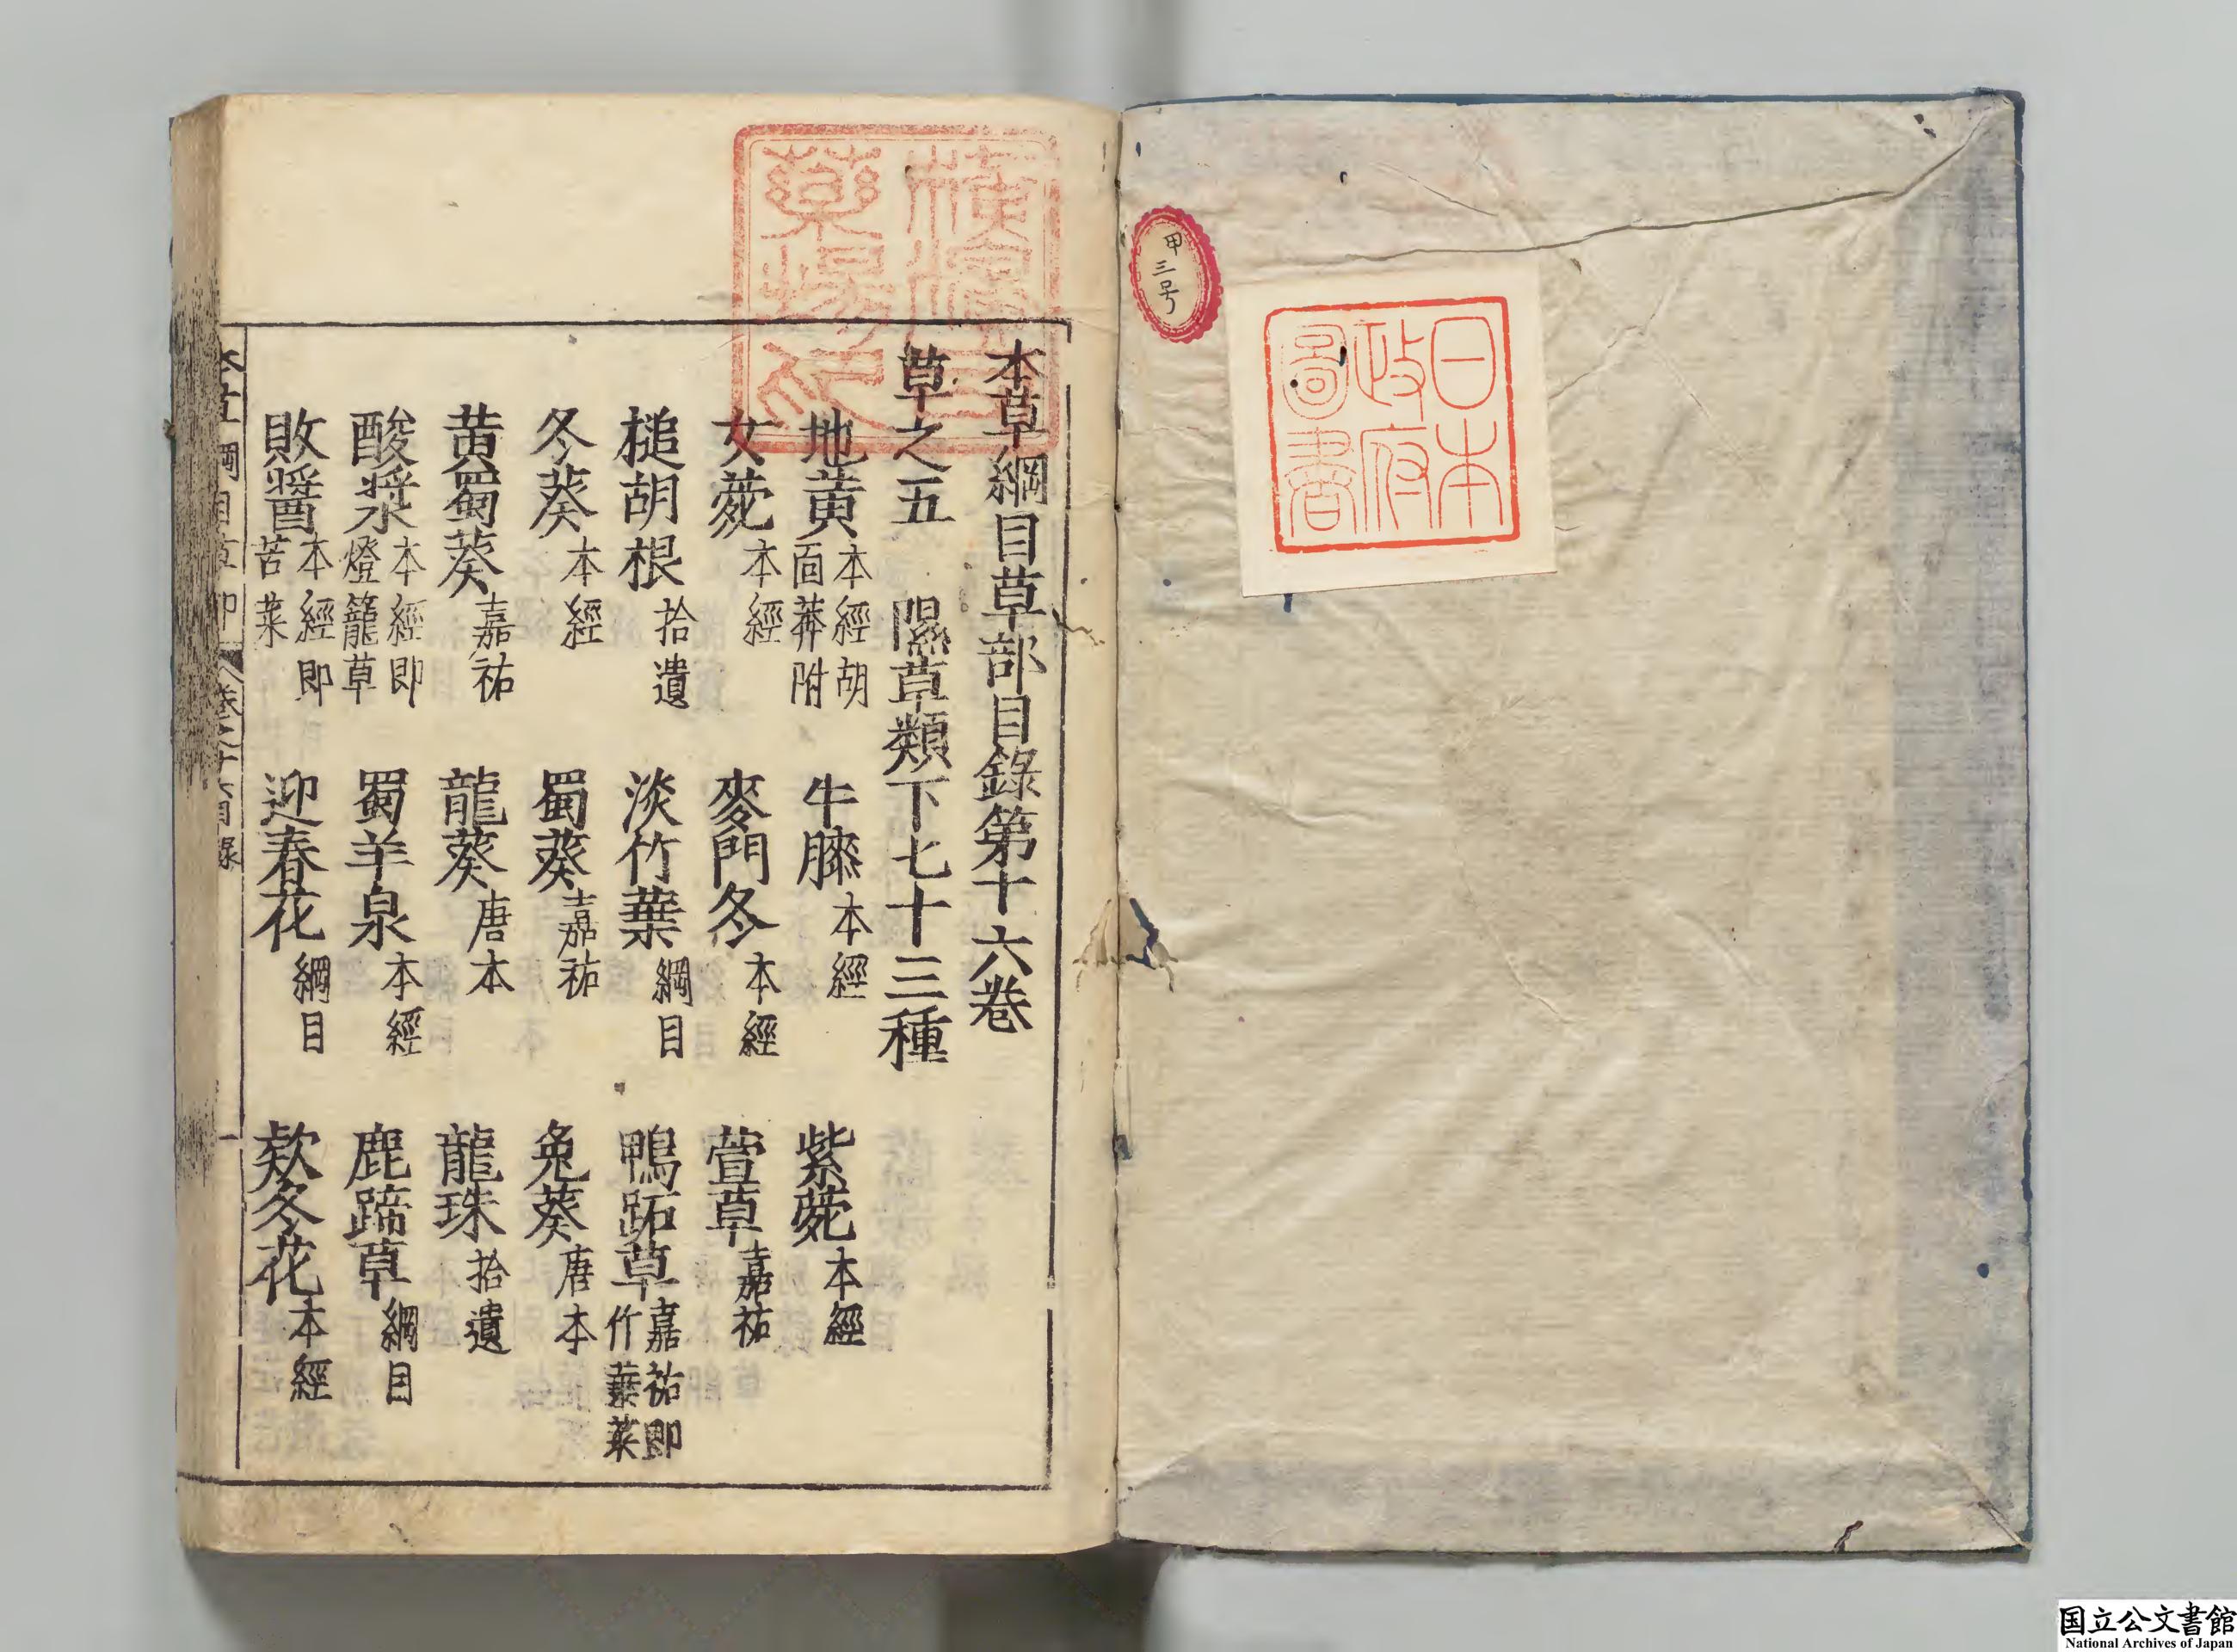 甲三号
日本
政府
圖書
本草綱目草部目錄第十六卷
草之五 隰草類下七十三種
地黃 本經胡面莽附 牛膝 本經 紫菀 本經
女菀 本經 麥門冬 本經 萱草 嘉祐
槌胡根 拾遺 淡竹葉 綱目 鴨跖草 嘉祐即竹葉菜
冬葵 本經 蜀葵 嘉祐 兔葵 唐本
黃蜀葵 嘉祐 龍葵 唐本 龍珠 拾遺
酸漿 本經即燈籠草 蜀羊泉 本經 鹿蹄草 綱目
敗醬 本經即苦菜 迎春花 綱目 欵冬花 本經
国立公文書館
National Archives of Japan